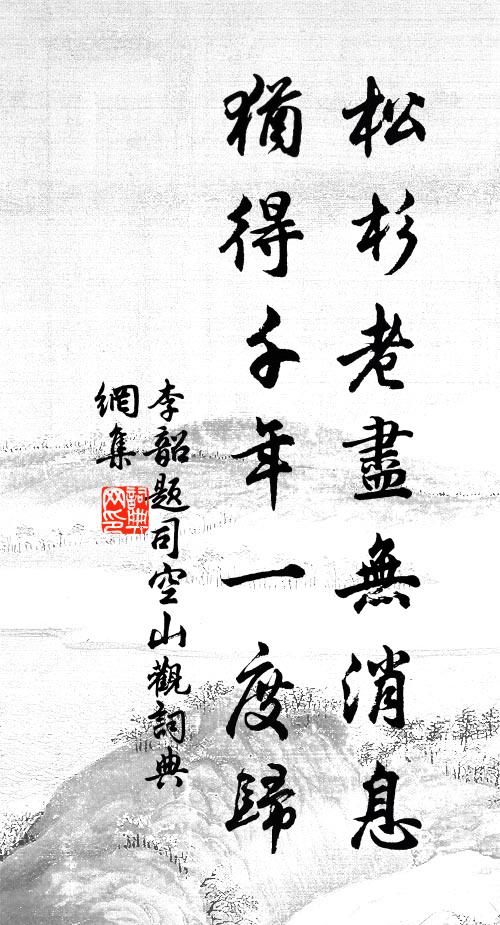 松杉老盡無消息
猶得千年一度歸
李韶題司空山觀詞典
網集
詞典
网印